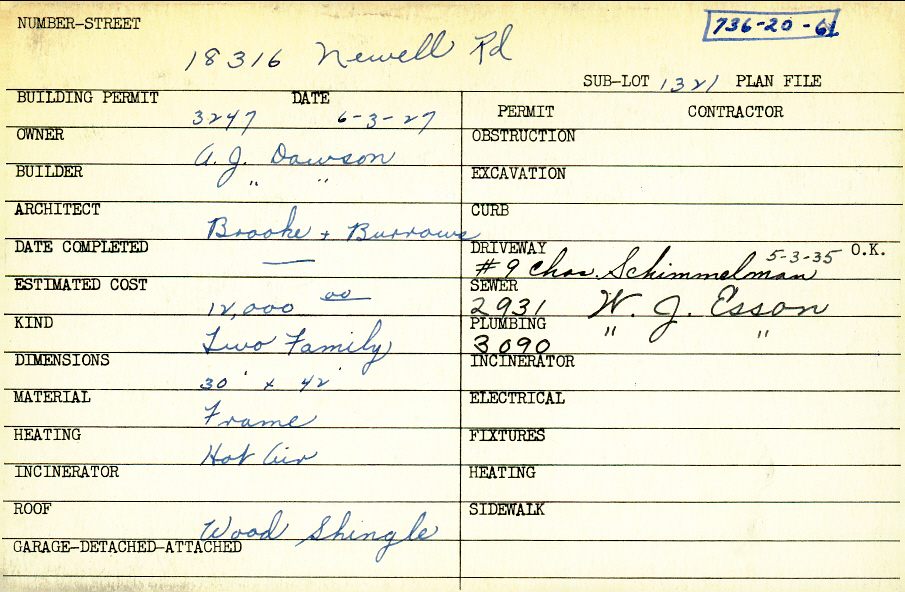 NUMBER-STREET
736-20-61
18316 Newell Rd
SUB-LOT 1321 PLAN FILE
BUILDING PERMIT DATE
3247 6-3-27
OWNER
A. J. Dawson
BUILDER
" "
ARCHITECT
Brooke + Burrows
DATE COMPLETED
—
ESTIMATED COST
12,000 00
KIND
Two Family
DIMENSIONS
30' x 42'
MATERIAL
Frame
HEATING
Hot Air
INCINERATOR
ROOF
Wood Shingle
GARAGE-DETACHED-ATTACHED
PERMIT CONTRACTOR
OBSTRUCTION
EXCAVATION
CURB
DRIVEWAY 5-3-35 O.K.
#9 Chas. Schimmelman
SEWER
2931 W. J. Esson
PLUMBING
3090 " "
INCINERATOR
ELECTRICAL
FIXTURES
HEATING
SIDEWALK